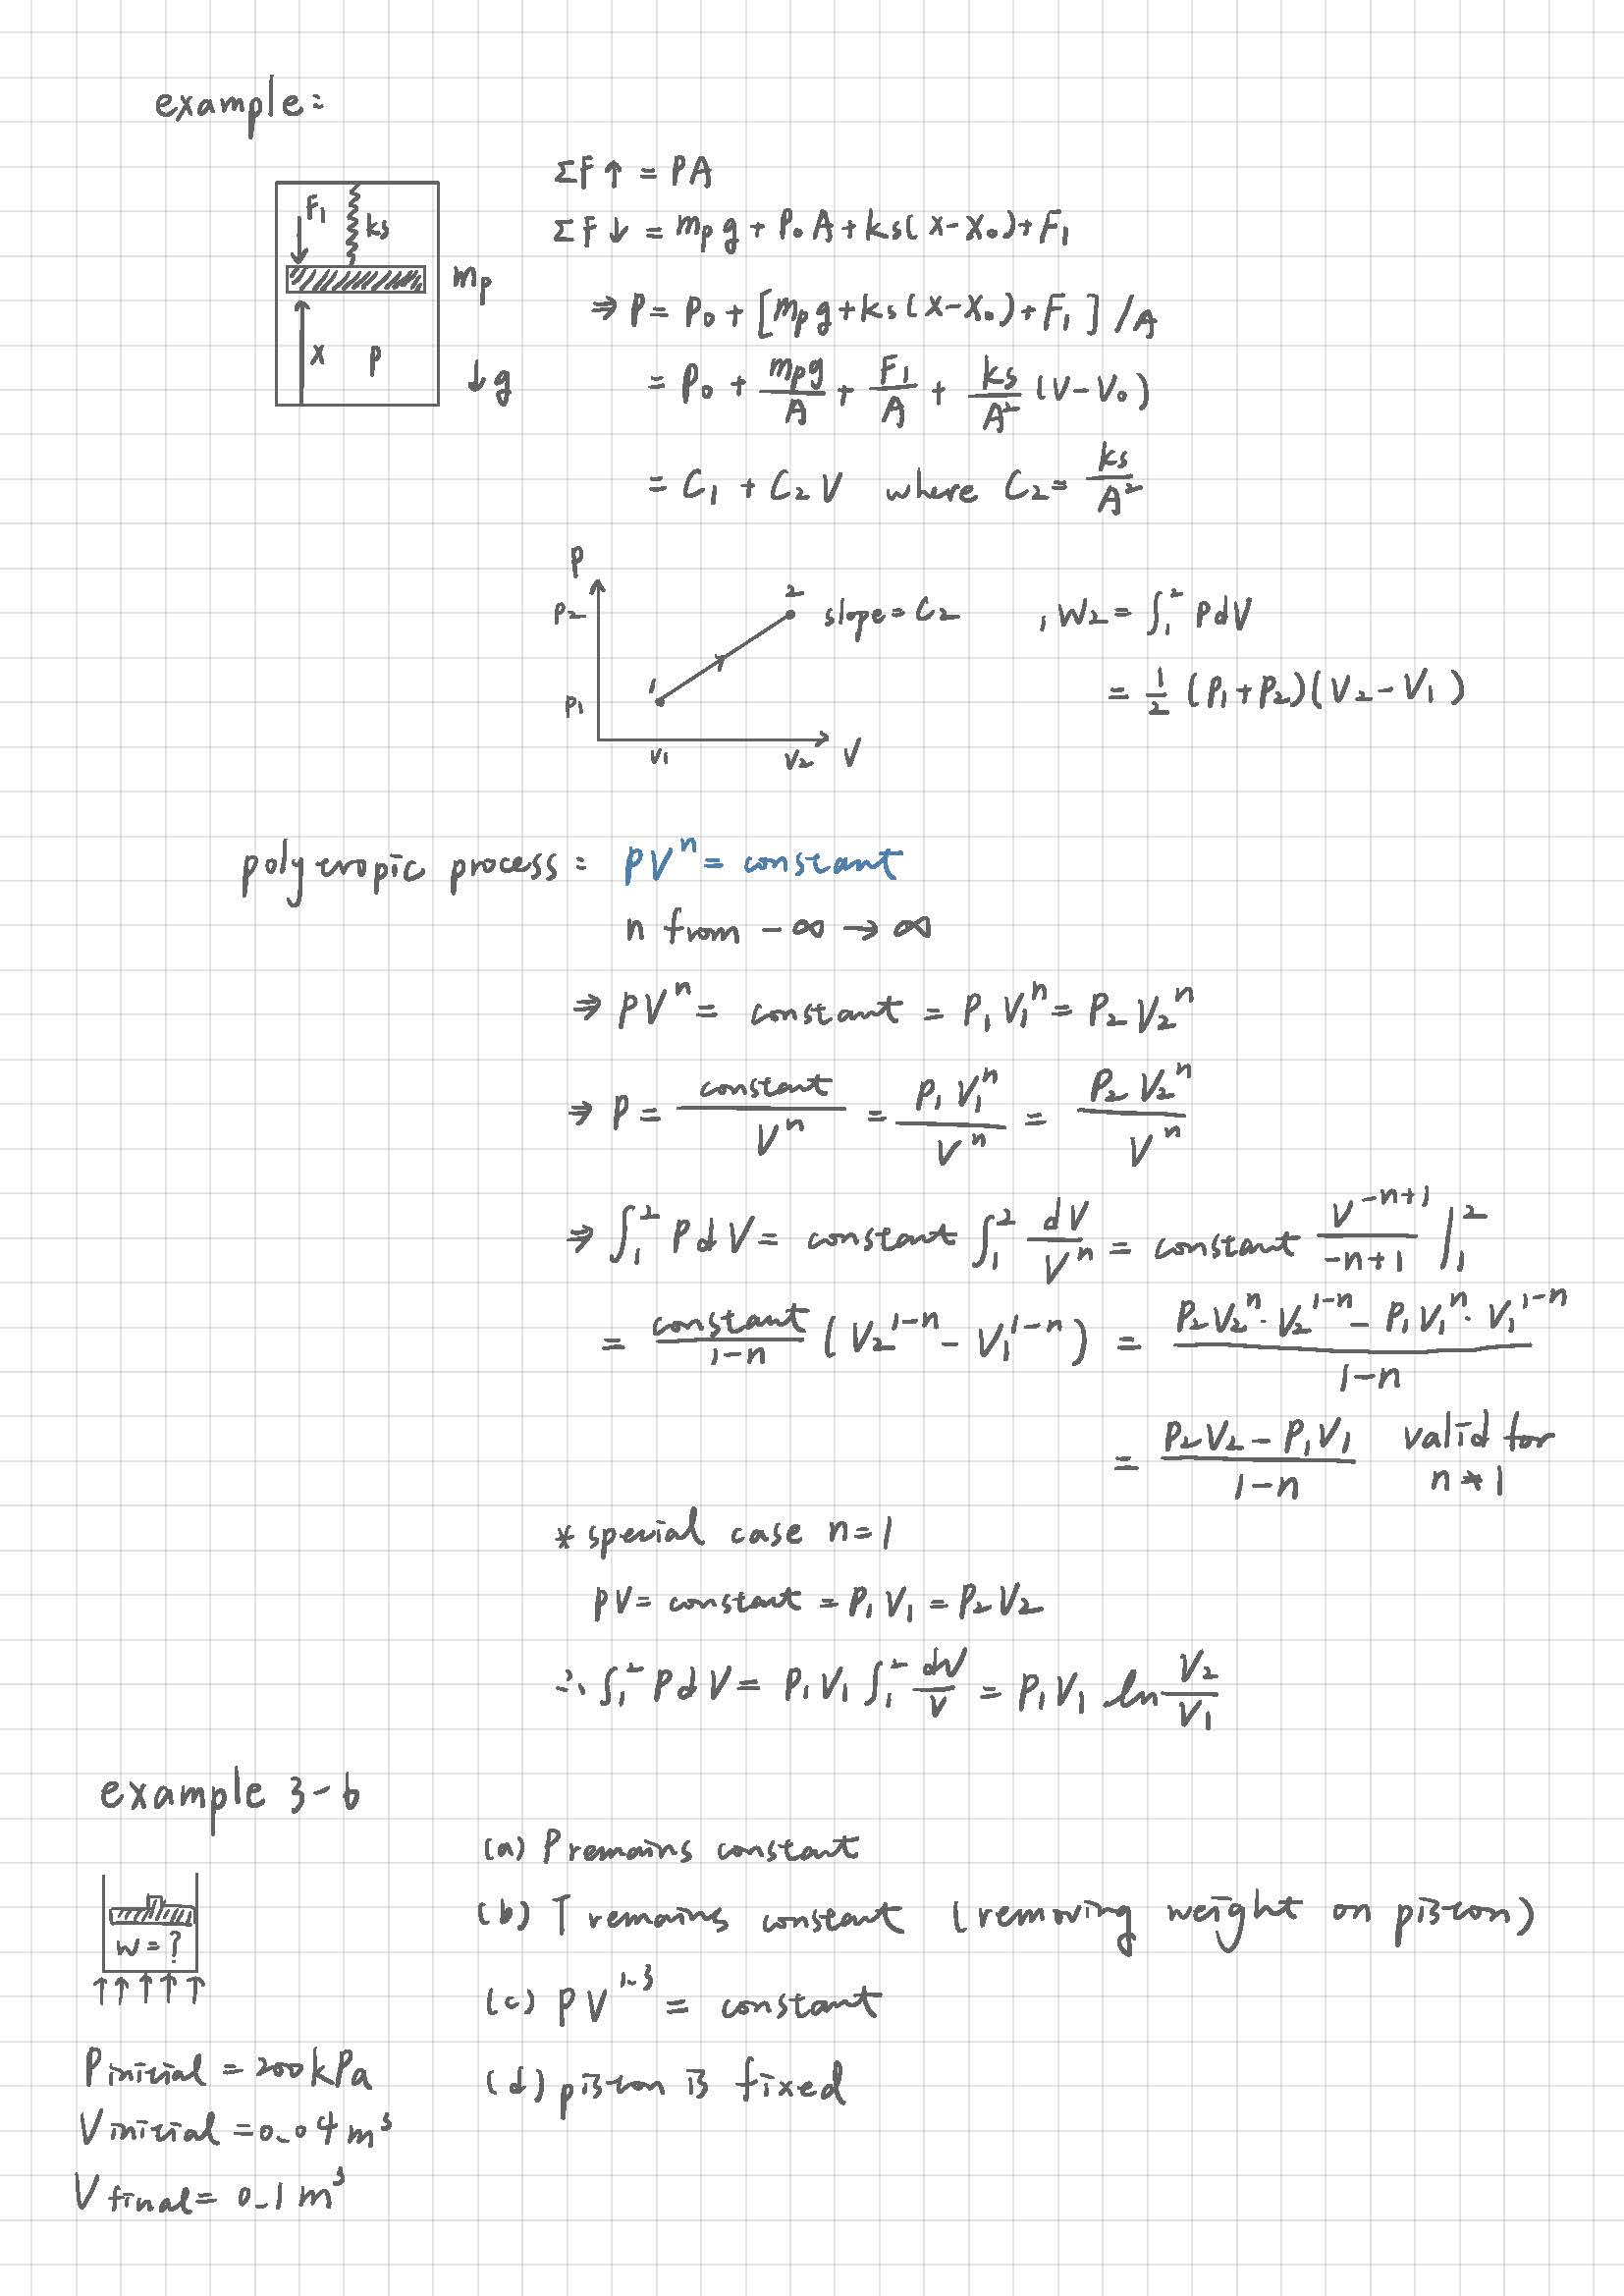 example:
F₁ ks
mp
x P
↓g
ΣF↑ = PA
ΣF↓ = mpg + P₀A + ks(x-x₀) + F₁
⇒ P = P₀ + [mpg + ks(x-x₀) + F₁]/A
= P₀ + mpg/A + F₁/A + ks/A² (V-V₀)
= C₁ + C₂V where C₂ = ks/A²
P
P₂
P₁
1
2
slope = C₂
V₁ V₂ V
₁W₂ = ∫₁² PdV
= 1/2 (P₁+P₂)(V₂-V₁)
polytropic process: PVⁿ = constant
n from -∞ → ∞
⇒ PVⁿ = constant = P₁V₁ⁿ = P₂V₂ⁿ
⇒ P = constant/Vⁿ = P₁V₁ⁿ/Vⁿ = P₂V₂ⁿ/Vⁿ
⇒ ∫₁² PdV = constant ∫₁² dV/Vⁿ = constant V⁻ⁿ⁺¹/(-n+1) |₁²
= constant/(1-n) (V₂¹⁻ⁿ - V₁¹⁻ⁿ) = (P₂V₂ⁿ·V₂¹⁻ⁿ - P₁V₁ⁿ·V₁¹⁻ⁿ)/(1-n)
= (P₂V₂ - P₁V₁)/(1-n) valid for n≠1
* special case n=1
PV = constant = P₁V₁ = P₂V₂
∴ ∫₁² PdV = P₁V₁ ∫₁² dV/V = P₁V₁ ln V₂/V₁
example 3-b
W=?
P initial = 200kPa
V initial = 0.04 m³
V final = 0.1 m³
(a) P remains constant
(b) T remains constant (removing weight on piston)
(c) PV¹·³ = constant
(d) piston is fixed